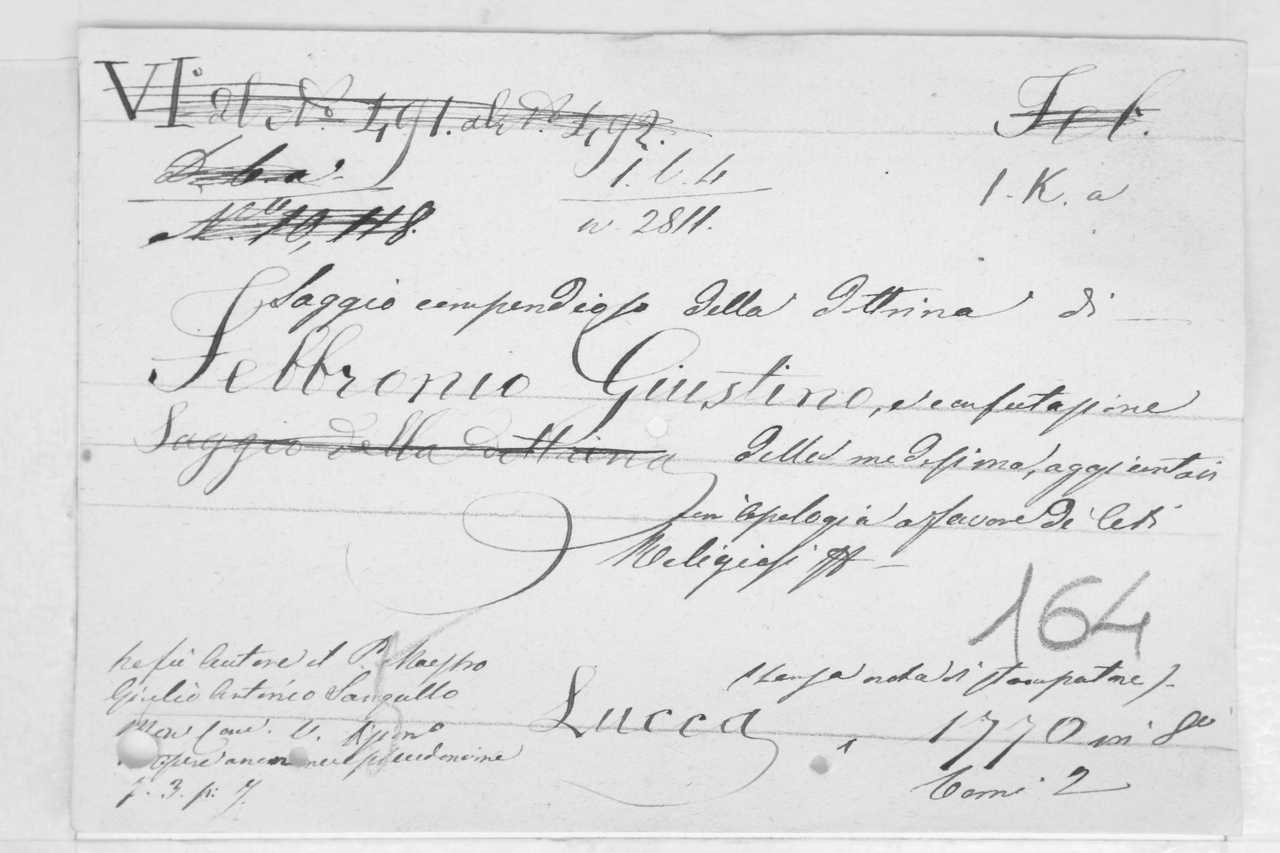 VI° al N.° 491. al N.° 492. Feb.
D. b. a. I. b. 4 I. K. a
N.° 10,118. n. 2811.
Saggio compendioso della dottrina di
Febbronio Giustino, e confutazione
Saggio della dottrina della medesima, aggiuntavi
un' apologia a favore de' Ceti
Religiosi
164
Ne fu Autore il P. Maestro (senza nota di stampatore).
Giulio Antonio Sangallo
Min. Con. Lucca, 1770 in 8°
opere anonime e pseudonime
t. 3. p. 7. Tomi 2